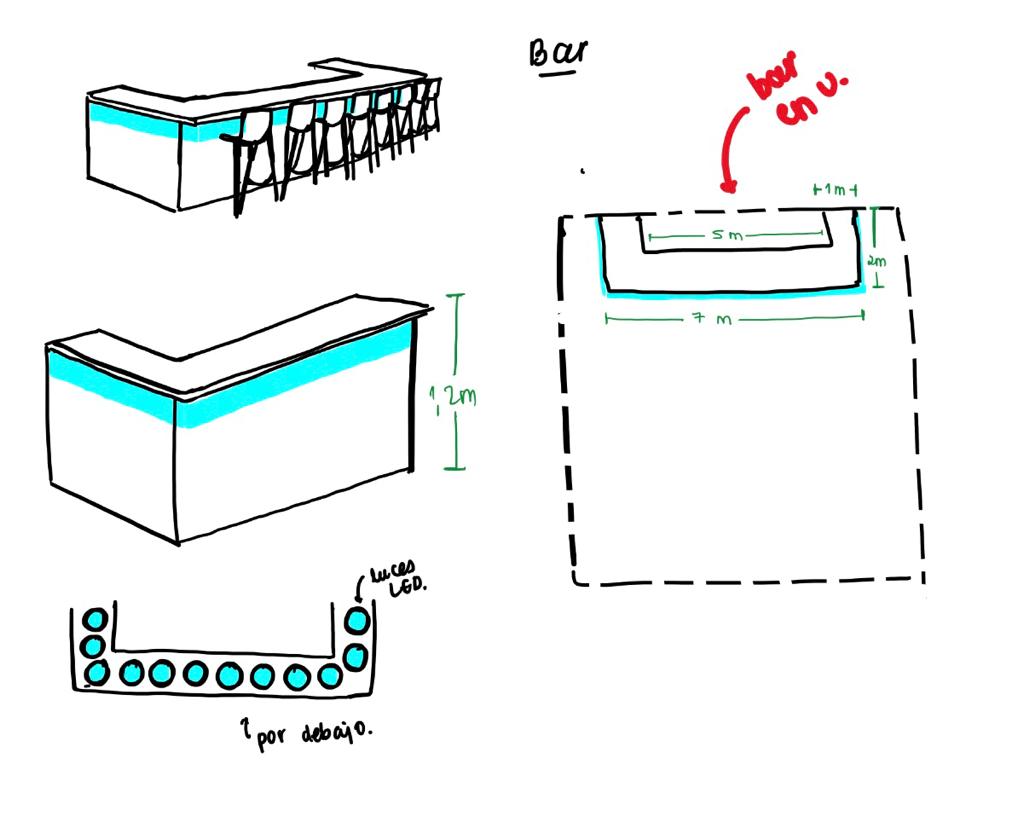 Bar
bar
en U.
1m
5 m
2m
7 m
1,2m
luces
LED.
por debajo.